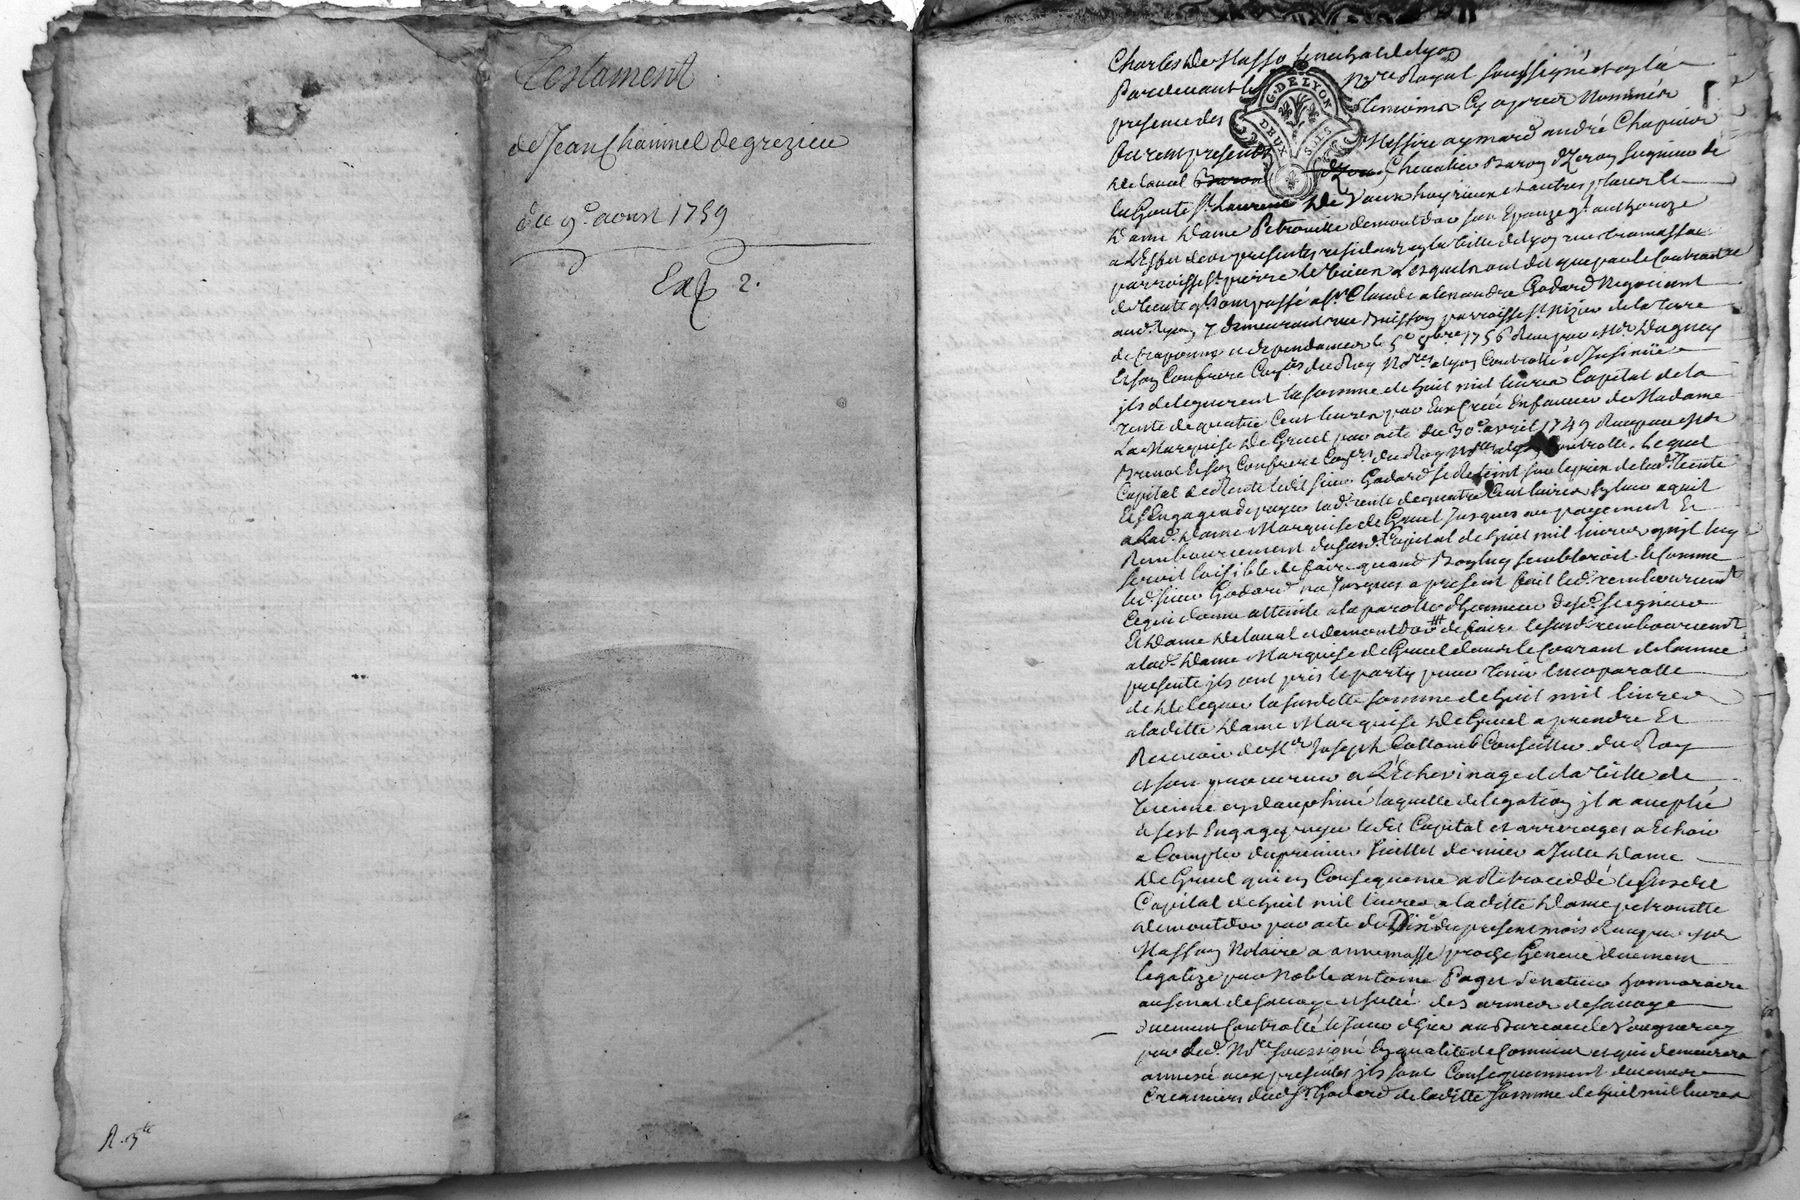 Testament
de Jean Chaninel de grezieu
du 9e. aoust 1759
Ext 2.
R. 5te
Charles De Masso Senechal de Lyon
Pardevant le Nre Royal soussigné et en la
presence des Temoins Cy apres Nommés
furent presents Messire aymard andré Chapuis
De Laval Baron d'Zeron Chevalier Baron d'Zeron Seigneur de
la Goute St. Laurent De Vaux hoyrieux et autres places Et
Dame Dame Petronille demontdor son Epouze qt. authorize
a L'Effet des presentes residants en la Ville de Lyon rue tramassac
parroisse St. pierre le Vieux Lesquels ont dit que par le Contract
de Vente qls ont passé a Sr. Claude alexandre Godard Negociant
aud. Lyon y demeurant rue Buisson parroisse St. Nizier de la terre
de craponne et dependances le 5e 9bre 1756 Recu par Me Dugueyt
Et son Confrere Conrs du Roy Nres a Lyon Controllé et Insinüé
jls deleguerent la somme de huit mil livres Capital de la
rente de quatre Cent livres par Eux Créée En faveur de Madame
La Marquise De Gruel par acte du 30e avril 1749 Recu par Me
Brenot Et son Confrere Conrs du Roy Nres a Lyon Controllé. Lequel
Capital de Rente ledit sieur Godard se Reteint sur le prix de lad. Vente
Et s'Engagea de payer lad. rente de quatre Cent livres En lieu aquit
a Lad. Dame Marquise de Gruel Jusques au payement Et
Remboursement dususd. Capital de huit mil livres qu'il luy
seroit loisible de faire quand Bon luy sembleroit Et Comme
led. sieur Godard na Jusques a present fait led. remboursement
Ce qui donne atteinte a la parolle d'honneur desd. seigneur
Et Dame De Laval et demontdor de faire le susd. remboursement
a lad. Dame Marquise de Gruel dans le Courant de l'année
presente jls ont pris le party pour Tenir Leur parolle
de Deleguer la susditte somme de huit mil livres
a laditte Dame Marquise De Gruel a prendre Et
Recevoir de Mr Joseph Collomb Conseiller du Roy
et son procureur a L'Echevinage de la Ville de
Vienne en dauphiné laquelle delegation jl a accepté
Et s'est Engagé payer ledit Capital et arrerages a Echoir
a Compter du premier Juillet dernier a Jcelle Dame
De Gruel qui en Consequence a Retrocedé le susdit
Capital de huit mil livres a laditte Dame petronille
demontdor par acte du Dix du present mois Recu par Me
Masson Notaire a annemasse proche Geneve duement
legalizé par Noble antoine Pages Senateur honnoraire
au senat de savoye et Juge des armées de savoye
Duement Controllé le Jour d'hier au Bureau de Vaugneray
par Led. Nre soussigné En qualité de Commis et qui demeurera
annexé aux presentes jls sont Consequemment demeurés
Creanciers dud. Sr. Godard de laditte somme de huit mil livres
G. DE LYON
DEUX SOLS